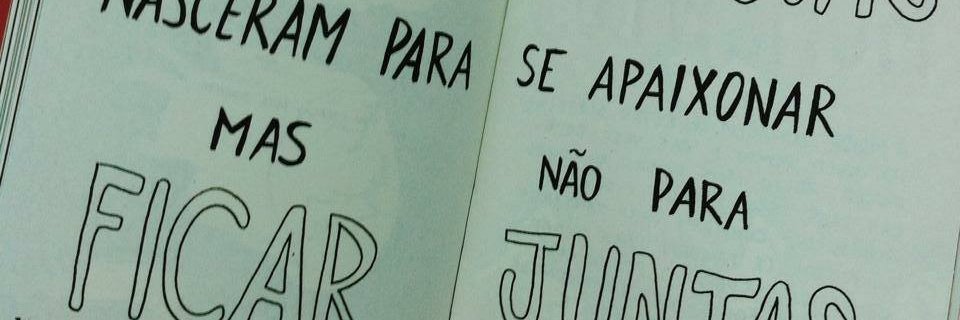 NASCERAM PARA SE APAIXONAR
MAS NÃO PARA
FICAR JUNTAS